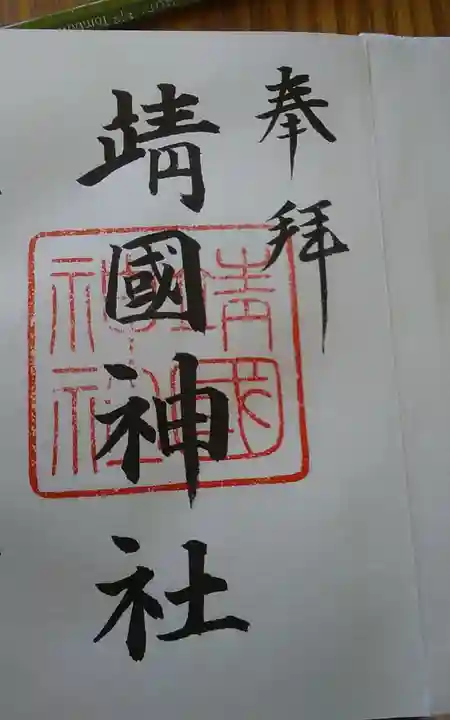 奉拝
靖國神社
靖國
神社